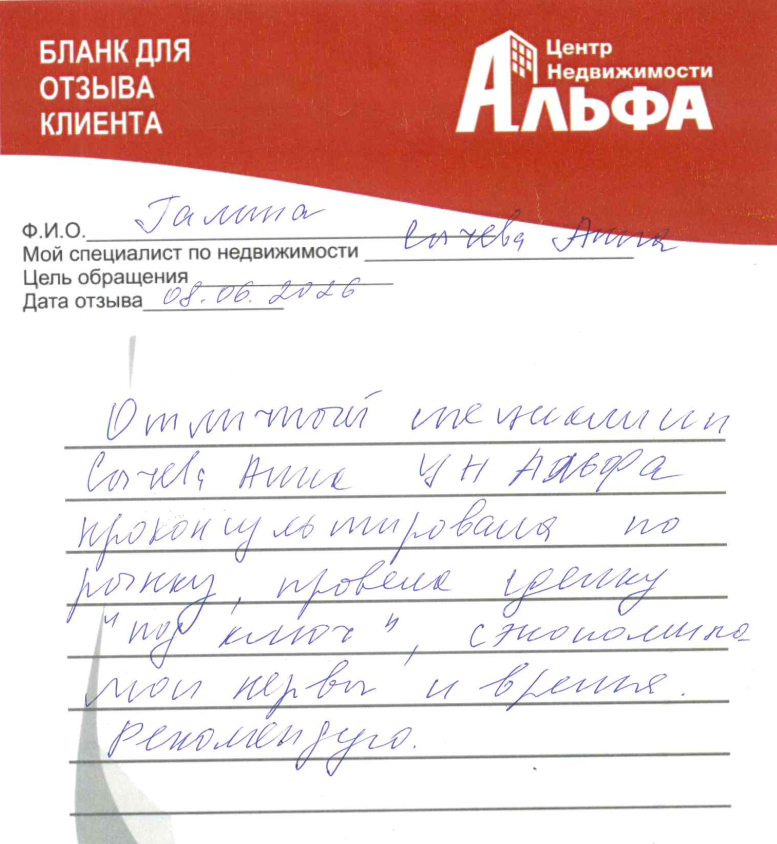 БЛАНК ДЛЯ
ОТЗЫВА
КЛИЕНТА
Центр
Недвижимости
АЛЬФА
Ф.И.О. Галина
Мой специалист по недвижимости Сычева Анна
Цель обращения
Дата отзыва 08.06.2026
Отличный специалист
Сычева Анна ЦН Альфа
проконсультировала по
рынку, провела сделку
"под ключ", сэкономила
мои нервы и время.
Рекомендую.